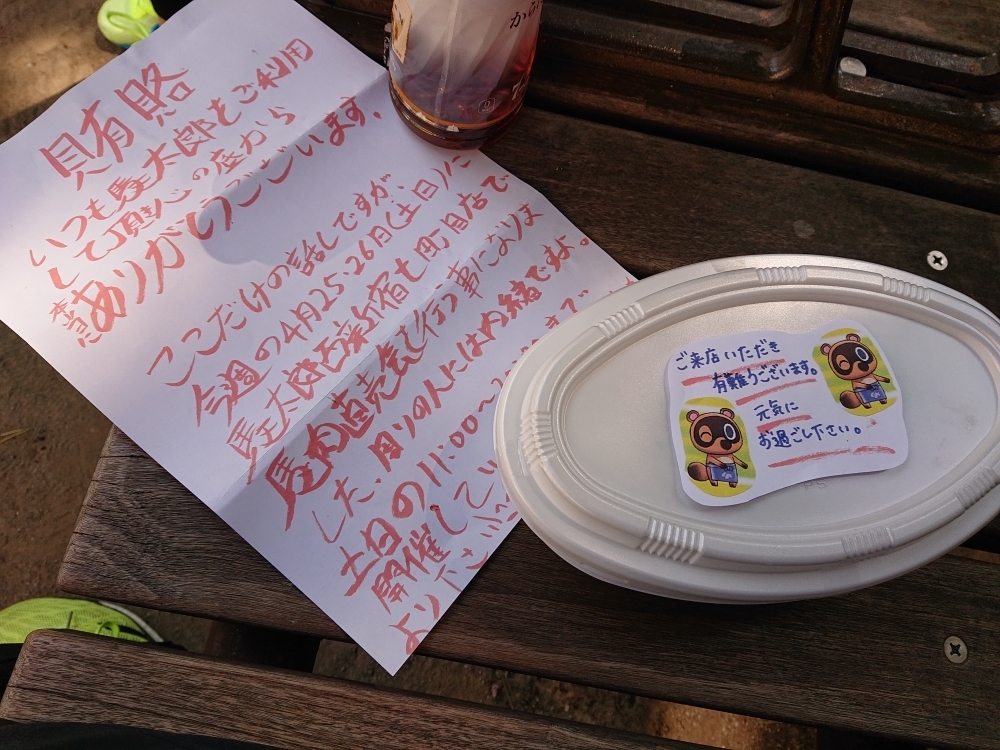 貝有賂
いつも馬王太郎をご利用
して頂き心の底から
本当に
ありがとうございます。
ここだけの話しですが、
今週の4月25・26日(土日)に
馬王太郎西新宿七丁目店で
馬肉直売会を行う事になりま
した。周りの人には内緒ですよ。
土日の11:00〜
開催して
下さい
ご来店いただき
有難うございます。
元気に
お過ごし下さい。